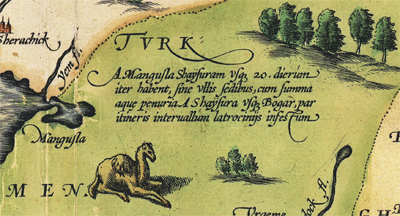 Sherachick
TVRK
Yem fl.
A Mangusla Shaysuram vsq̃ 20. dierum
iter habent, sine vllis sedibus, cum summa
aque penuria. A Shaysura vsq̃ Bogar, par
itineris interuallum latrocinijs infestum
Mangusla
MEN
fl.